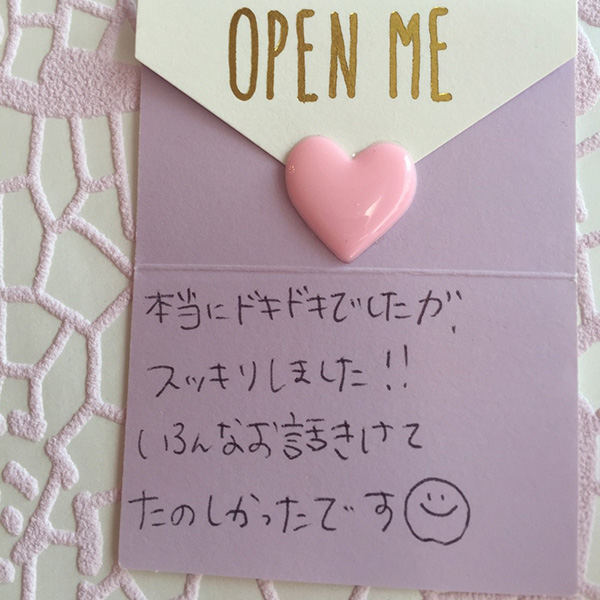 OPEN ME
本当にドキドキでしたが、
スッキリしました!!
いろんなお話きけて
たのしかったです